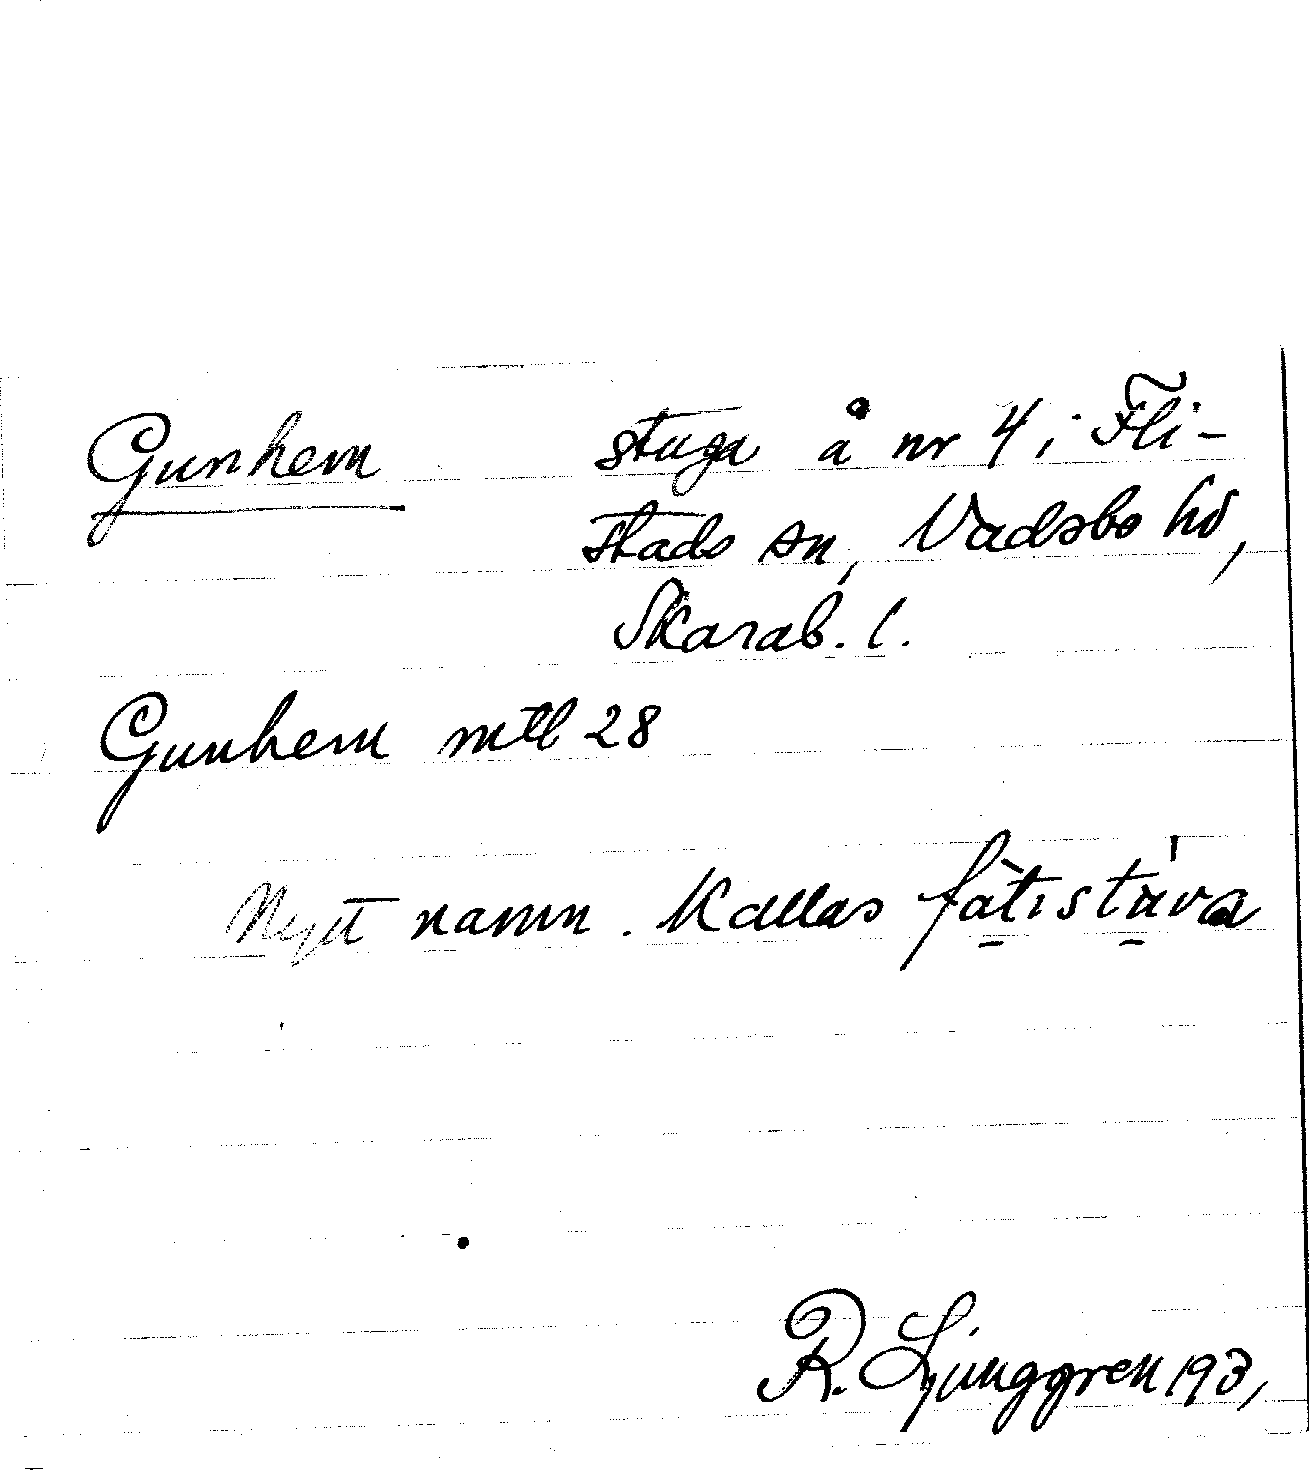 Gunhem stuga å nr 4 i Fli-
stads sn, Vadsbo hd,
Skarab. l.
Gunhem mtl 28
Nytt namn. Kallas fàtıstúva
R. Ljunggren 193,